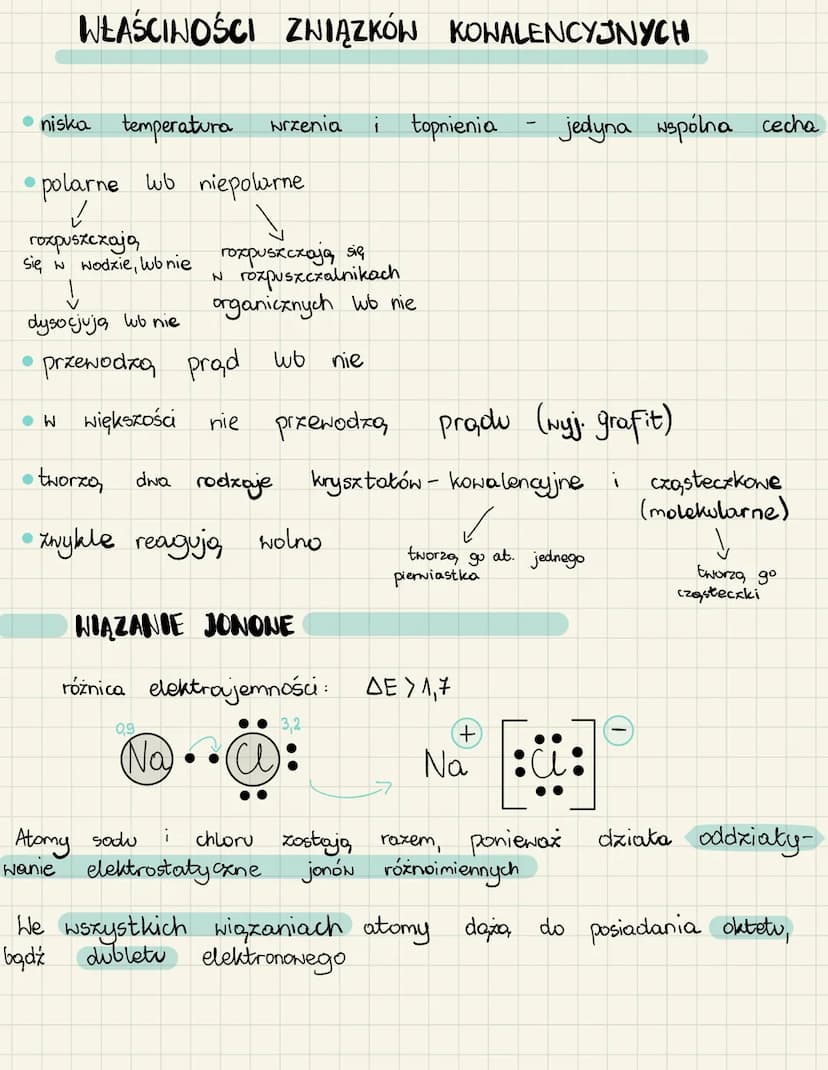 WŁAŚCIWOŚCI ZWIĄZKÓW KOWALENCYJNYCH
• niska temperatura wrzenia i topnienia - jedyna wspólna cecha
• polarne lub niepolarne
rozpuszczają
się w wodzie, lub nie
dysocjują lub nie
rozpuszczają się
w rozpuszczalnikach
organicznych lub nie
• przewodzą prąd lub nie
• w większości nie przewodzą prądu (wyj. grafit)
• tworzą dwa rodzaje kryształów - kowalencyjne i cząsteczkowe
(molekularne)
tworzą go at. jednego
pierwiastka
tworzą go
cząsteczki
• zwykle reagują wolno
WIĄZANIE JONOWE
różnica elektroujemności: ΔE > 1,7
0,9 3,2
Na Cl Na + [Cl] −
Atomy sodu i chloru zostają razem, ponieważ działa oddziały-
wanie elektrostatyczne jonów różnoimiennych
We wszystkich wiązaniach atomy dążą do posiadania oktetu,
bądź dubletu elektronowego